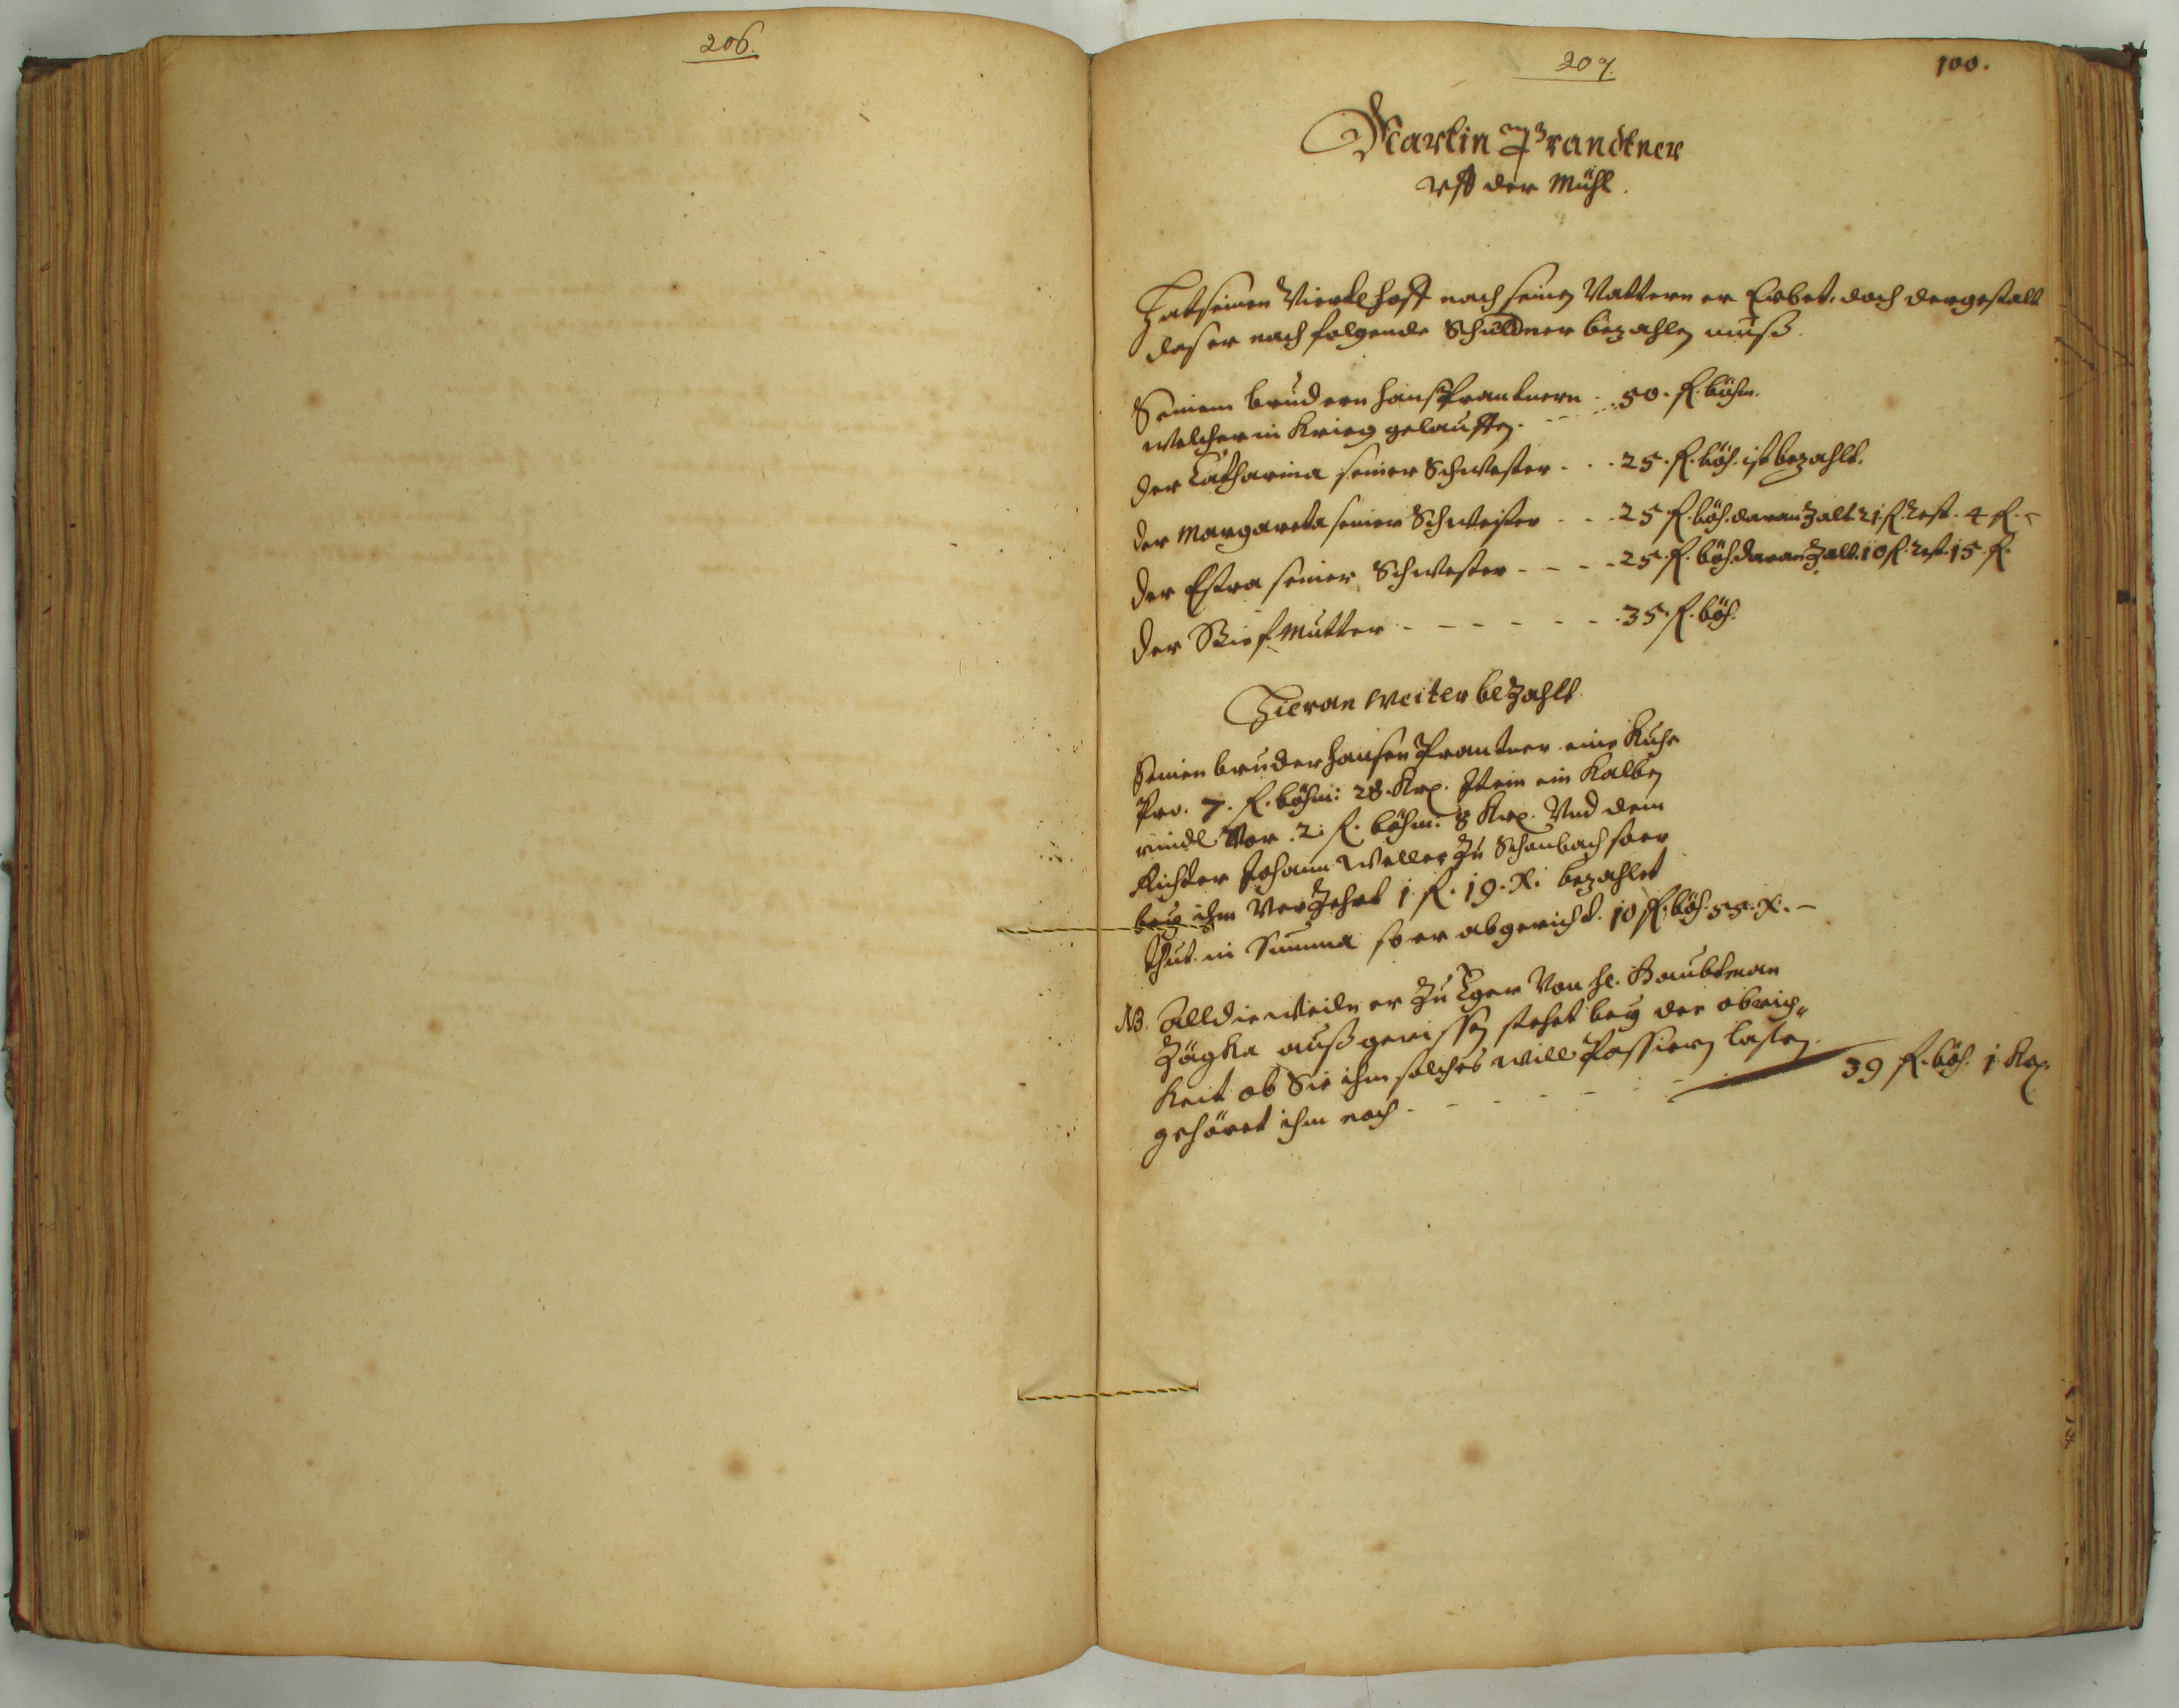 206.
207.
100.
Martin Prandtner
vff der Mühl.
Hat seinen Viertlhoff nach seinen Vattern er Erbet, doch dergestalt
das er nach folgende Schuldner bezahlen muß.
Seinem brudern Hanß Prantnern . . 50. fl. böhm.
welcher in Krieg gelauffen.
Der Catharina seiner Schwester . . . 25. fl. böh. ist bezahlt.
Der Margareta seiner Schweister . . . 25 fl. böh. daran Zalt 21 fl. Rest. 4 fl.
Der Eva seiner Schwester - - - - 25. fl. böh. daran Zalt. 10 fl. rest 15. fl.
Der Stiefmutter - - - - - - 35. fl. böh.
Hieran weiter beZahlt
Seinen bruder Hansen Prantner eine Kuhe
Pro. 7. fl. böhm: 28. Krz. Item ein Kalben
rindl Vor. 2. fl. böhm. 8 Krz. Vnd dem
Richter Johann Weller Zu Schönbach so er
bey ihm VerZehrt 1 fl. 19. X. bezahlet
thut in Summa so er abgericht. 10 fl. böh. 55. X. -
NB. Alldieweiln er Zu Eger Von H. Haubtman
außgerissen stehet bey der obrig-
keit ob Sie ihm solches will Passiern lassen.
gehöret ihm noch - - - - - - 39 fl. böh. 1 Krz.